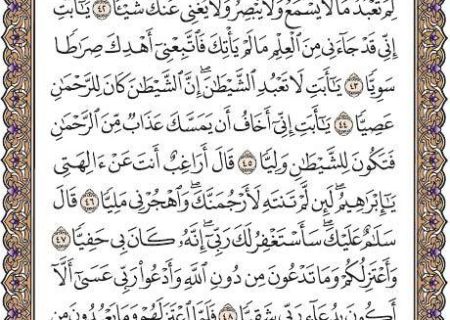 لِمَ تَعْبُدُ مَا لَا يَسْمَعُ وَلَا يُبْصِرُ وَلَا يُغْنِي عَنكَ شَيْـًٔا ٤٢ يَـٰٓأَبَتِ
إِنِّي قَدْ جَآءَنِي مِنَ ٱلْعِلْمِ مَا لَمْ يَأْتِكَ فَٱتَّبِعْنِيٓ أَهْدِكَ صِرَٰطًا
سَوِيًّا ٤٣ يَـٰٓأَبَتِ لَا تَعْبُدِ ٱلشَّيْطَـٰنَۖ إِنَّ ٱلشَّيْطَـٰنَ كَانَ لِلرَّحْمَـٰنِ
عَصِيًّا ٤٤ يَـٰٓأَبَتِ إِنِّيٓ أَخَافُ أَن يَمَسَّكَ عَذَابٌ مِّنَ ٱلرَّحْمَـٰنِ
فَتَكُونَ لِلشَّيْطَـٰنِ وَلِيًّا ٤٥ قَالَ أَرَاغِبٌ أَنتَ عَنْ ءَالِهَتِي
يَـٰٓإِبْرَٰهِيمُۖ لَئِن لَّمْ تَنتَهِ لَأَرْجُمَنَّكَۖ وَٱهْجُرْنِي مَلِيًّا ٤٦ قَالَ
سَلَـٰمٌ عَلَيْكَۖ سَأَسْتَغْفِرُ لَكَ رَبِّيٓۖ إِنَّهُۥ كَانَ بِي حَفِيًّا ٤٧
وَأَعْتَزِلُكُمْ وَمَا تَدْعُونَ مِن دُونِ ٱللَّهِ وَأَدْعُوا۟ رَبِّي عَسَىٰٓ أَلَّآ
أَكُونَ بِدُعَآءِ رَبِّي شَقِيًّا ٤٨ فَلَمَّا ٱعْتَزَلَهُمْ وَمَا يَعْبُدُونَ مِن